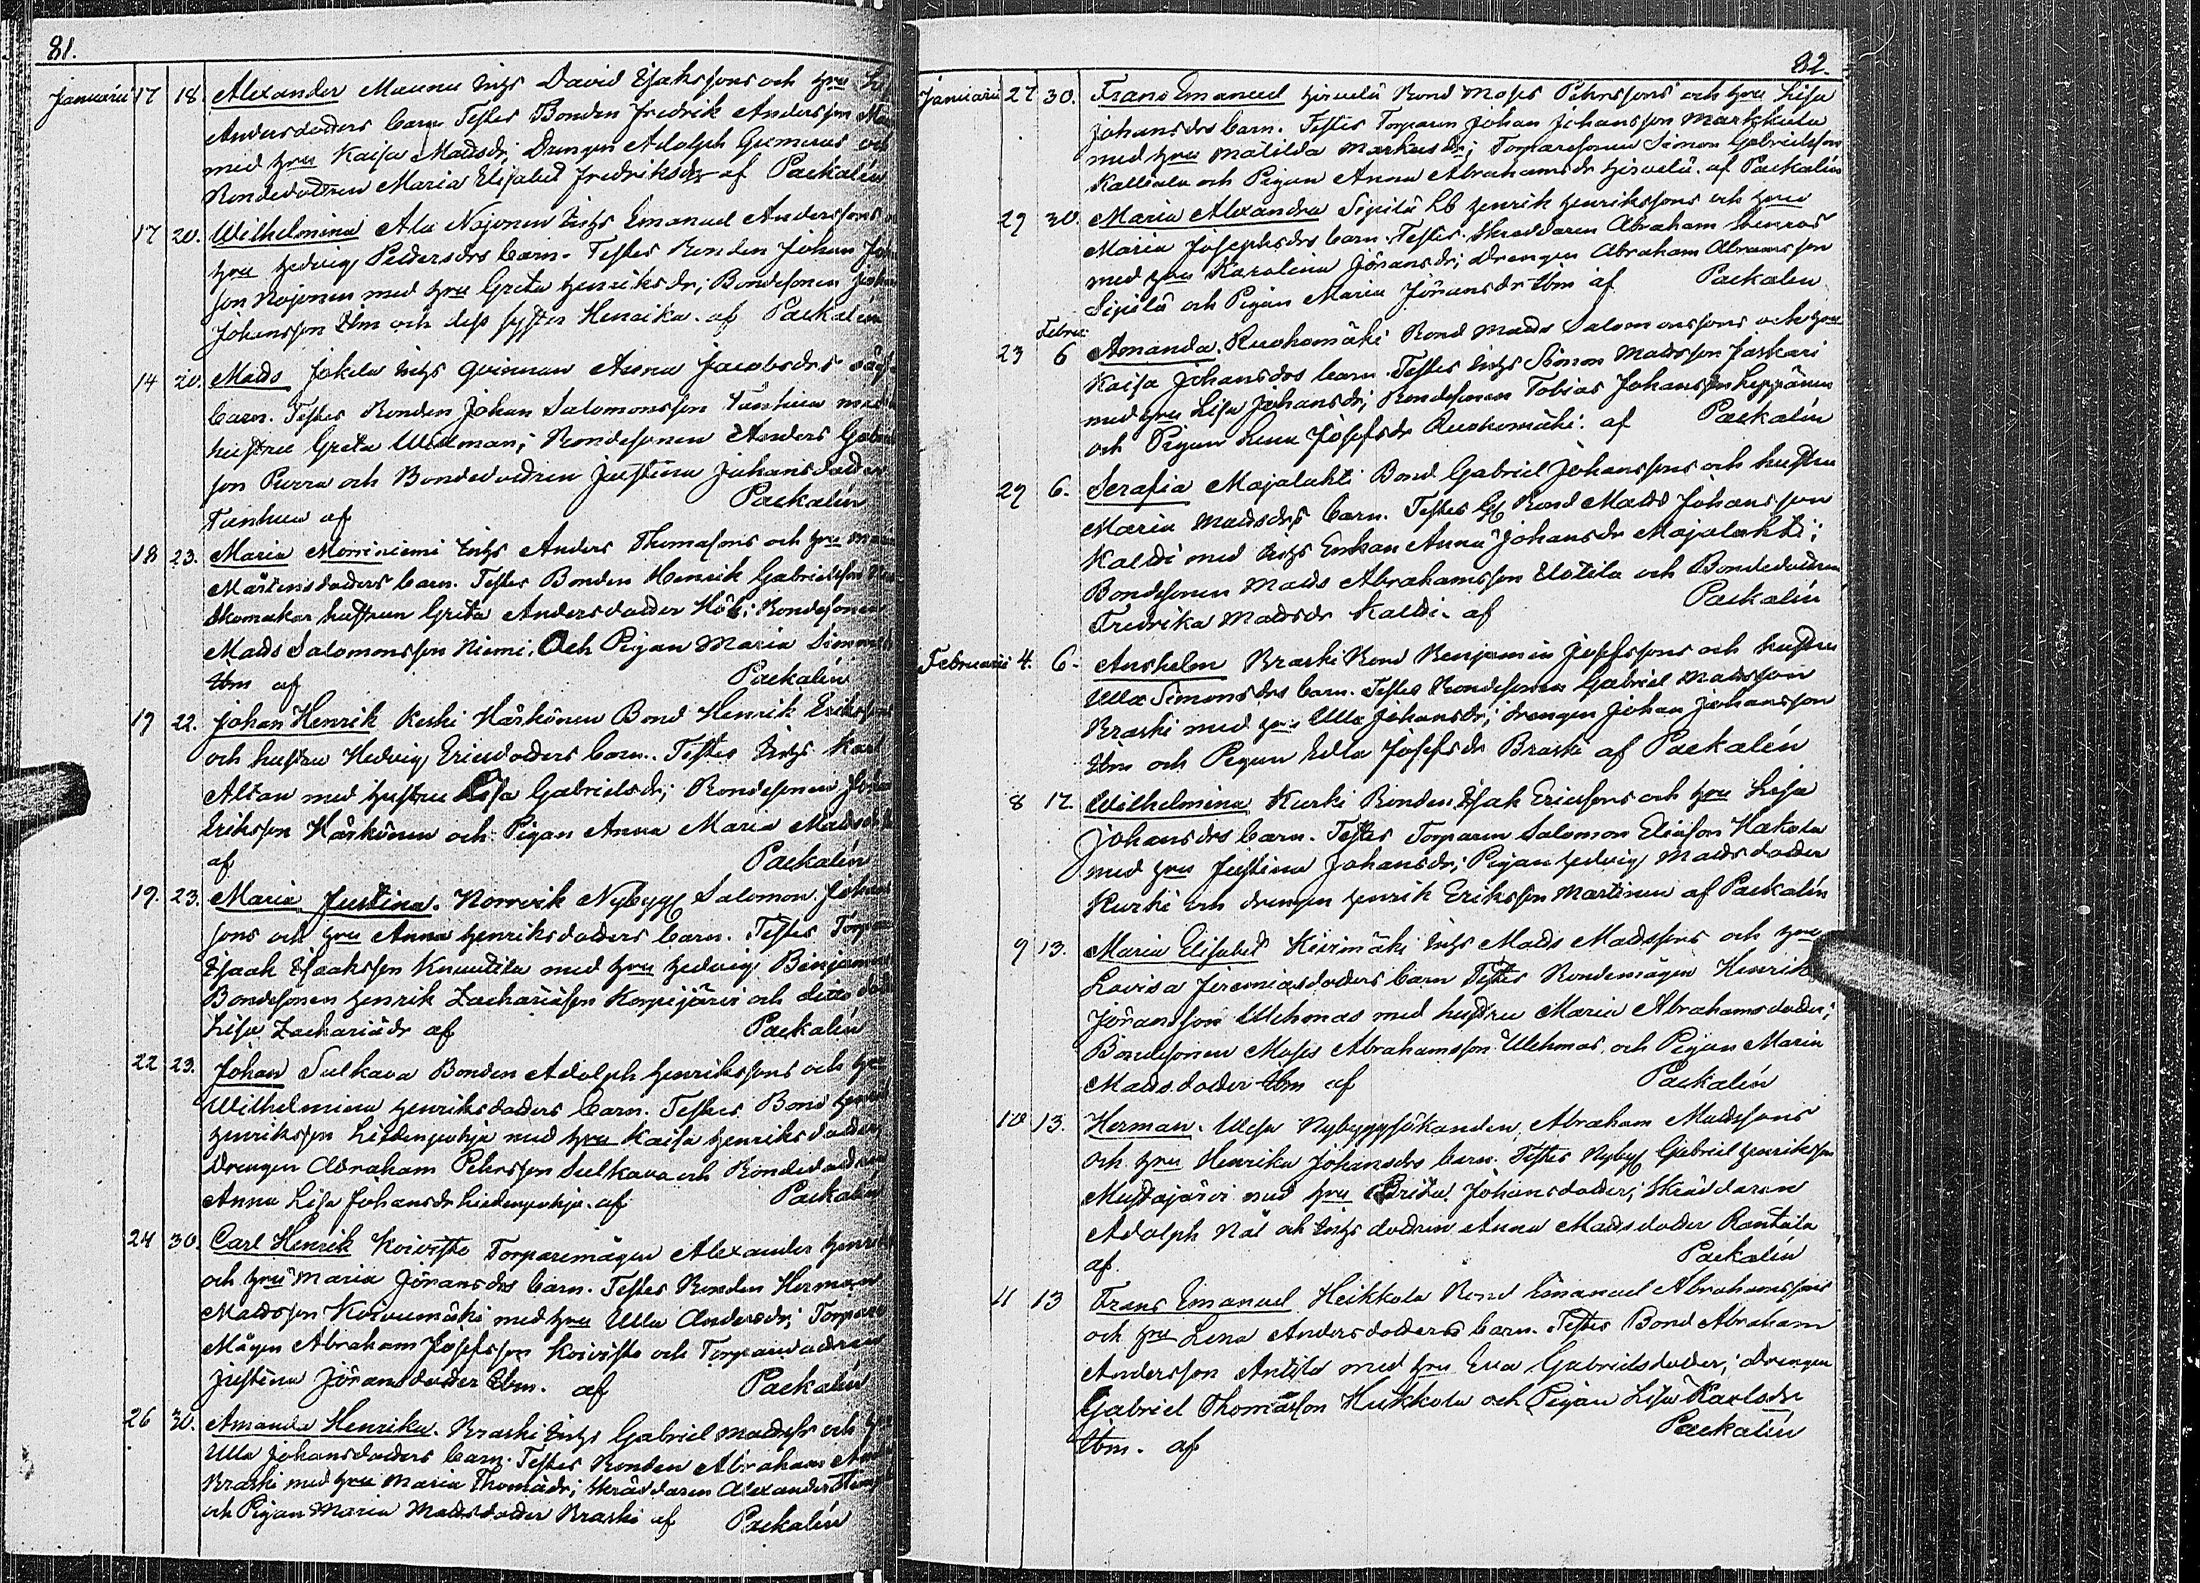 81.
Januarii 17 18. Alexander Maunu Inhs David Isakssons och hru
Andersdotters barn Testes Bonden Fredrik Andersson
med hru Kaisa Madsdr; Drengen Adolph Gummerus och
Bondedottren Maria Elisabet Fredriksdr af Packalén
17 20. Wilhelmina Ala Nojonen Inhs Emanuel Anderssons
hru Hedvig Pettersdrs barn. Testes Bonden Johan
son Nojonen med hru Greta Henriksdr; Bondesonen
Johansson Ibm och dess syster Henrika. af Packalén
14 20. Mads Jokela Inhs qvinnan Anna Jacobsdrs
barn. Testes Bonden Johan Salomonsson Tanhua med
hustru Greta Widman; Bondesonen Anders
son Purra och Bondedottren Justina Johansdotter
Tanhua af Packalén
18 23. Maria Monniniemi Inhs Anders Thomasons och hru
Mårtensdotters barn. Testes Bonden Henrik Gabrielsson
Skomakar hustrun Greta Andersdotter Höl; Bondesonen
Mads Salomonsson Niemi, Och Pigan Maria
Ibm af Packalén
19 22. Johan Henrik Keski Härkönen Bond Henrik Erikssons
och hustru Hedvig Ericsdotters barn. Testes Inhs Karl
Altan med hustru Lisa Gabrielsdr; Bondesonen
Eriksson Härkönen och Pigan Anna Maria Madsdr
af Packalén
19. 23. Maria Justina. Norrvik Nybygg Salomon
sons och hru Anna Henriksdotters barn. Testes
Isaak Isaaksson Knuutila med hru Hedvig
Bondesonen Henrik Zachariäson Korpijärvi och ditto
Lisa Zachariädr af Packalén
22 23. Johan Sulkava Bonden Adolph Henrikssons och
Wilhelmina Henriksdotters barn. Testes Bond
Henriksson Lidenpohja med hru Kaisa Henriksdotter
Drengen Abraham Pehrsson Sulkava och Bondedottren
Anna Lisa Johansdr Lidenpohja. af Packalén
24 30. Carl Henrik Koivisto Torparemågen Alexander
och hru Maria Jöransdrs barn. Testes Bonden Herman
Madsson Koivumäki med hru Ulla Andersdr;
Mågen Abraham Josefsson Koivisto och Torparedottren
Justina Jöransdotter Ibm. af Packalén
26 30. Amanda Henrika. Kraski Inhs Gabriel Madssons och
Ulla Johansdotters barn. Testes Bonden Abraham
Kraski med hru Maria Thomädr; Skräddaren Alexander
och Pigan Maria Madsdotter Kraski af Packalén
82.
Januarii 27 30. Frans Emanuel Hirvelä Bond Moses Pehrssons och hru Lisa
Johansdrs barn. Testes Torparen Johan Johansson Markkula
med hru Matilda Markusdr; Torparesonen Simon Gabrielsson
Kalliala och Pigan Anna Abrahamsdr Hirvelä. af Packalén
29 30. Maria Alexandra Sipilä Lb Henrik Henrikssons och hru
Maria Josephsdrs barn. Testes. Skräddaren Abraham Stenros
med hru Karolina Jöransdr; Drengen Abraham Abramsson
Sipilä och Pigan Maria Jöransdr Ibm af Packalén
Febru:
23 6 Amanda. Ruohomäki Bond Mads Salomonssons och hru
Kaisa Johansdrs barn. Testes Inhs Simon Madsson Jaskari
med hru Lisa Johansdr; Bondesonen Tobias Johansson Leppänen
och Pigan Lena Josefsdr Ruohomäki. af Packalén
29 6. Serafia Majalahti Bond Gabriel Johanssons och hustru
Maria Madsdrs barn. Testes Gl Bond Mads Johansson
Kaldi med Inhs Enkan Anna Johansdr Majalahti;
Bondesonen Mads Abrahamsson Uotila och Bondedottren
Fredrika Madsdr Kaldi. af Packalén
Februarii 4. 6. Anshelm Kraski Bond Benjamin Josefssons och hustru
Ulla Simonsdrs barn. Testes Bondesonen Gabriel Madsson
Kraski med hru Ulla Johansdr; drengen Johan Johansson
Ibm och Pigan Edla Josefsdr Braski af Packalén
8 12. Wilhelmina Kurki Bonden Isak Ericssons och hru Lisa
Johansdrs barn. Testes Torparen Salomon Eliäson Hakola
med hru Justina Johansdr; Pigan Hedvig Madsdotter
Kurki och drengen Henrik Eriksson Martinen af Packalén
9 13. Maria Elisabet Kivimäki Inhs Mads Madssons och hru
Lovisa Jeremiasdotters barn Testes Bondemågen Henrik
Jöransson Wehmas med hustru Maria Abrahamsdotter;
Bondesonen Moses Abrahamsson Wehmas, och Pigan Maria
Madsdotter Ibm af Packalén
10 13. Herman. Vesa Nybyggsökanden Abraham Madssons
och hru Henrika Johansdrs barn. Testes Nybygg Gabriel Henriksson
Mustajärvi med hru Brita Johansdotter; Skräddaren
Adolph Näl och Inhs dottren Anna Madsdotter Rantala
af Packalén
11 13 Frans Emanuel Heikkola Bond Emanuel Abrahamssons
och hru Lena Andersdotters barn. Testes Bond Abraham
Andersson Antila med hru Eva Gabrielsdotter; Drengen
Gabriel Thomasson Heikkola och Pigan Lisa Karlsdr
Ibm. af Packalén